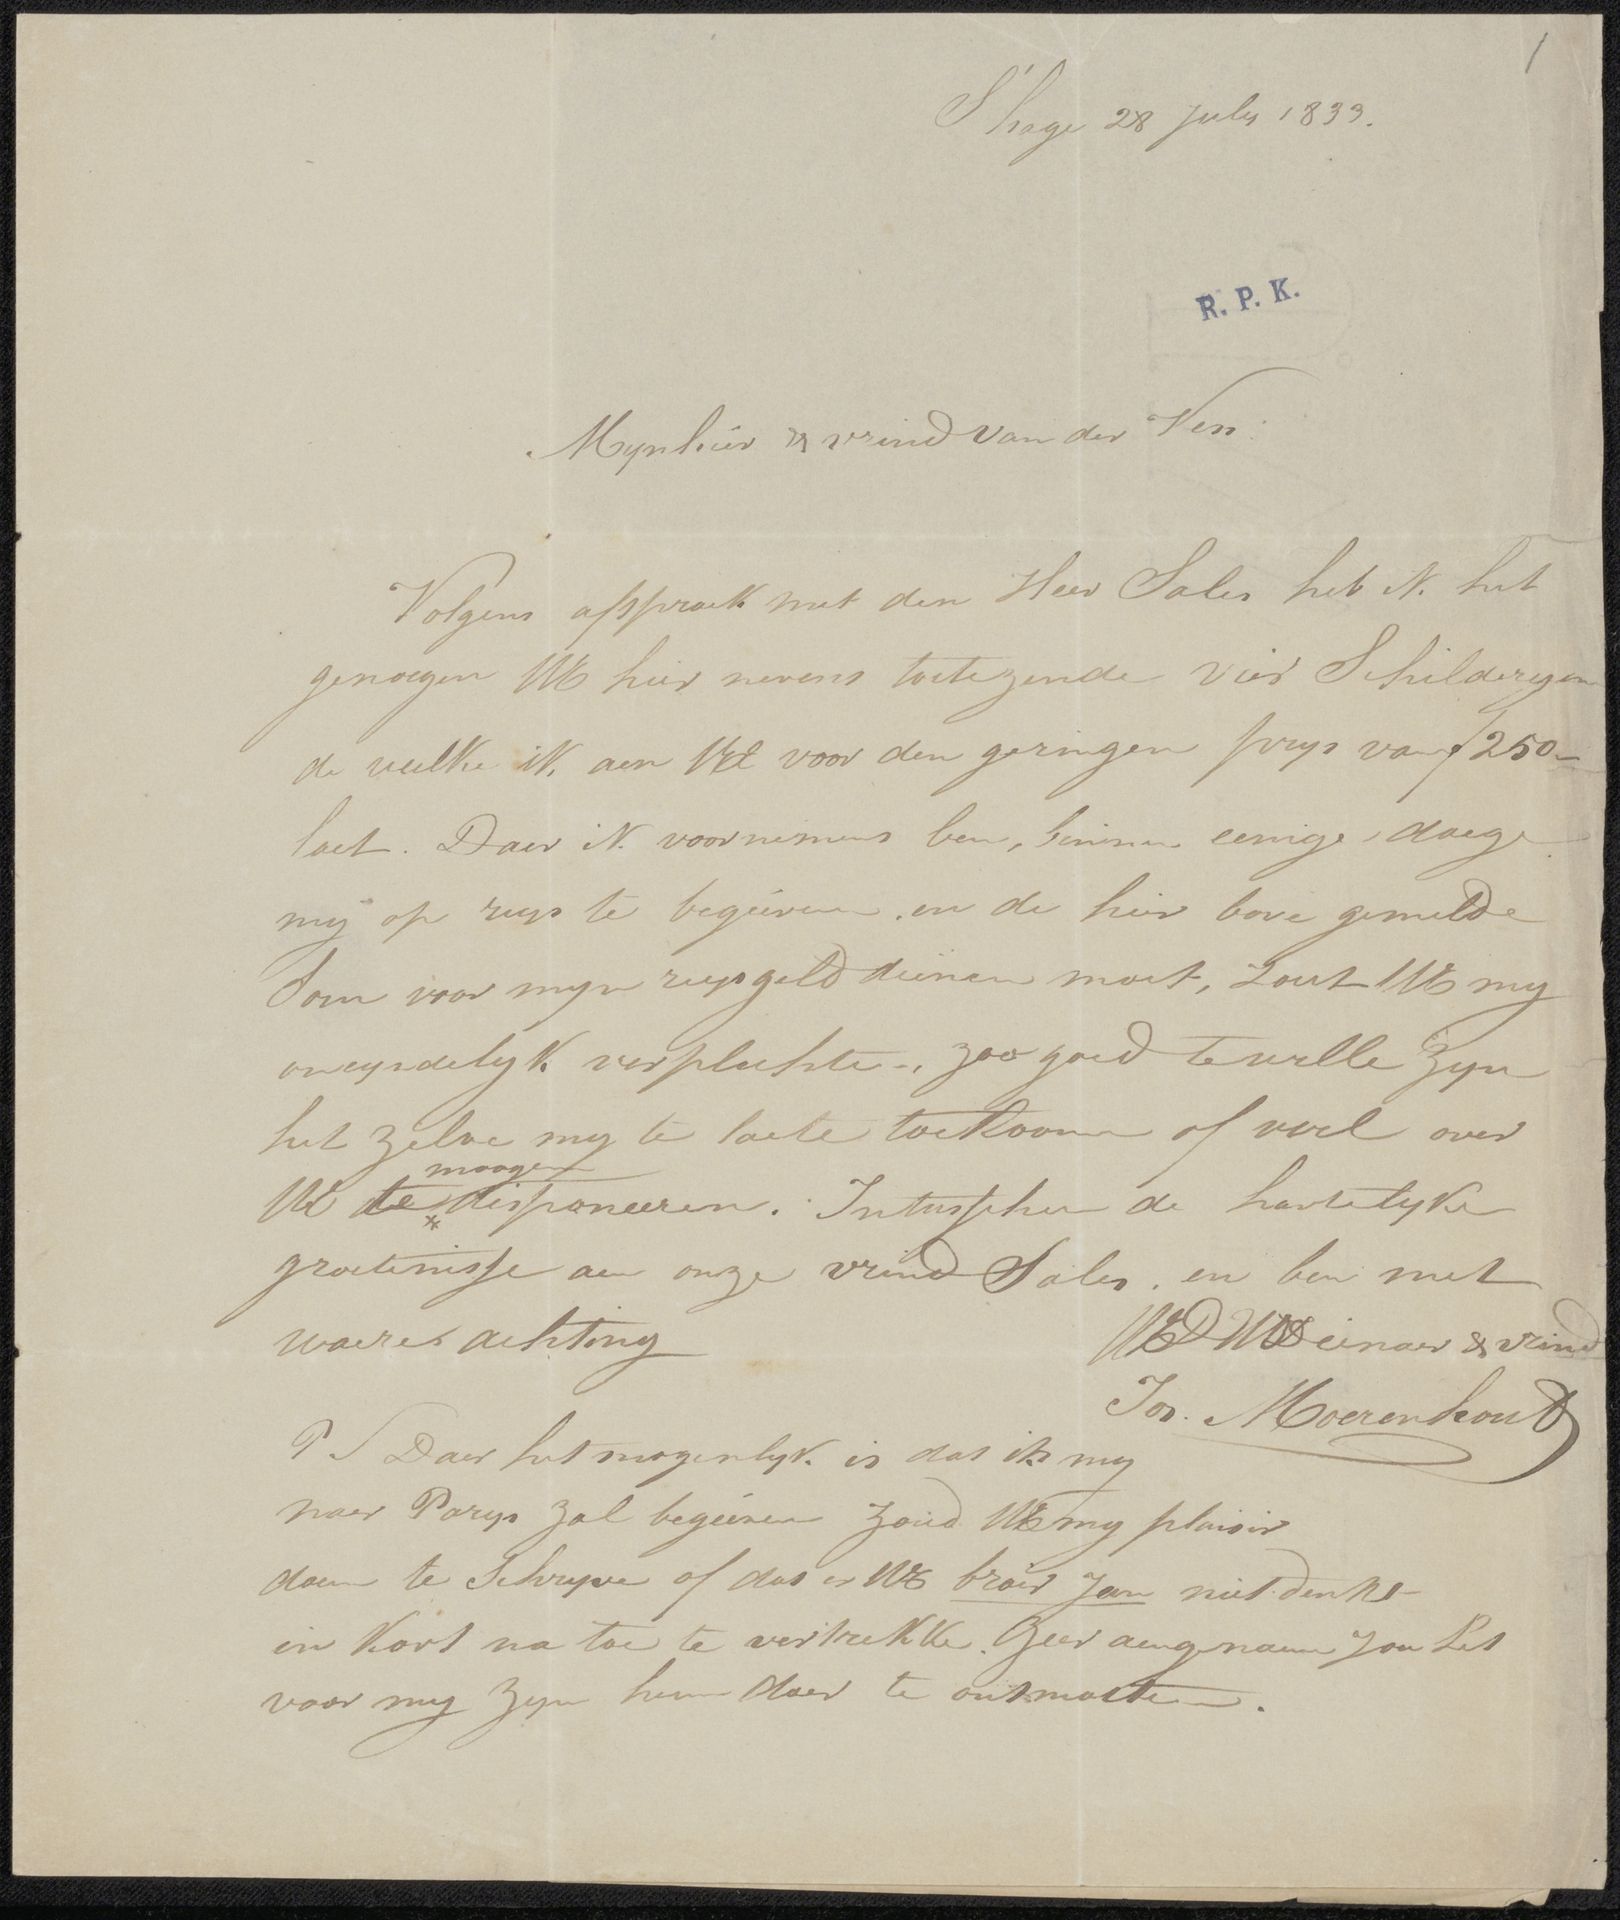 1
S'hage 28 july 1833.
R. P. K.
Mynheer & vrind van der Ven:
Volgens afspraek met den Heer Sales heb ik het
genoegen UE hier nevens toetezende vier Schilderyen
de welke ik aen UE voor den geringen prys van f 250-
laet. Daer ik voornemens ben, binnen eenige daege
my op reys te begeéven en de hier bove gemelde
Som voor myn reysgeld dienen moet, zout UE my
oneyndelyk verplichte, zoo goed te wille zyn
het zelve my te laete toekoomen of wel over
moogen
UE te disponeeren. Intusschen de hartelyke
groetenisse aen onze vrind Sales. en ben met
waere achting
UEDWDienaer & vrind
Jos. Moerenhout
PS Daer het mogenlyk is dat ik my
naer Parys zal begeéven zoud UE my plaisir
doen te Schryve of dat er UE broér Jan niet denkt
in kort na toe te vertrekke. Zeer aengenaem zou het
voor my zyn hem daer te ontmoeten.